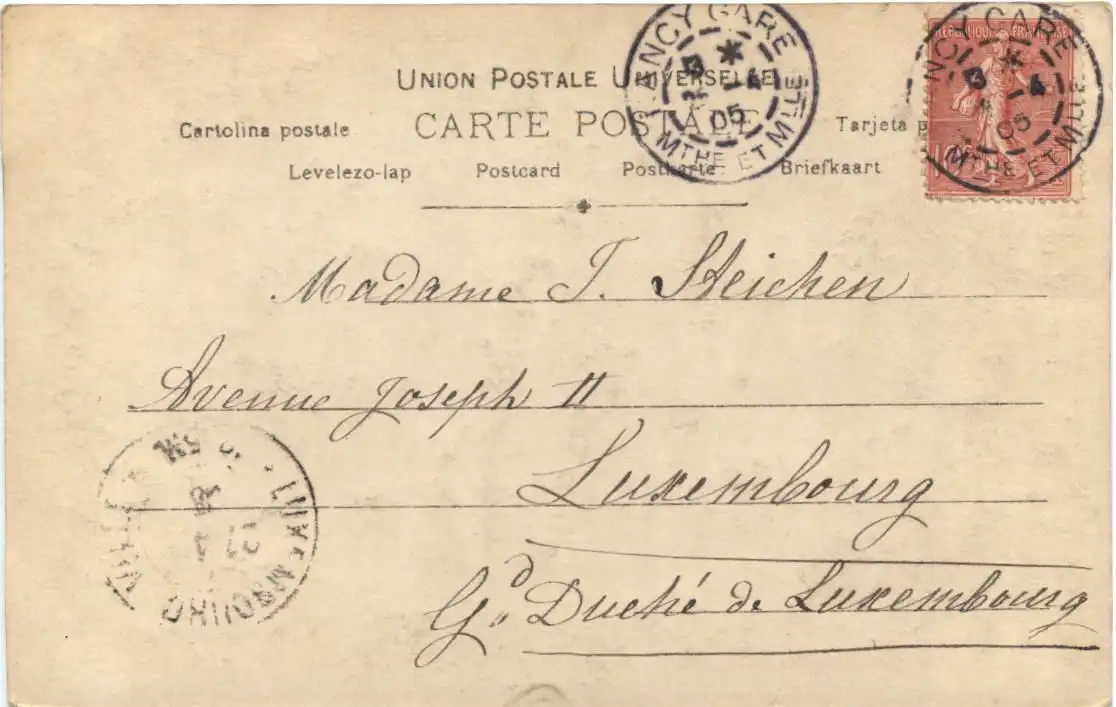 UNION POSTALE UNIVERSELLE
CARTE POSTALE
Cartolina postale
Tarjeta
Levelezo-lap Postcard Postkarte Briefkaart
NANCY GARE
-4
05
MTHE ET MLLE
REPUBLIQUE FRANÇAISE
10
NANCY GARE
-4
05
MTHE ET MLLE
Madame J. Steichen
Avenue Joseph II
Luxembourg
Gd. Duché de Luxembourg
LUXEMBOURG